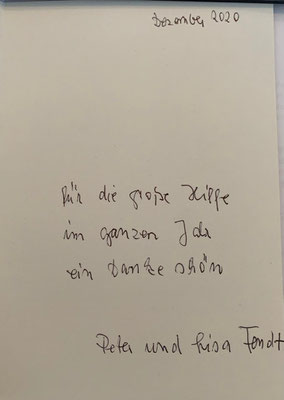 Dezember 2020
für die große Hilfe
im ganzen Jahr
ein Danke schön
Peter und Lisa Fendt